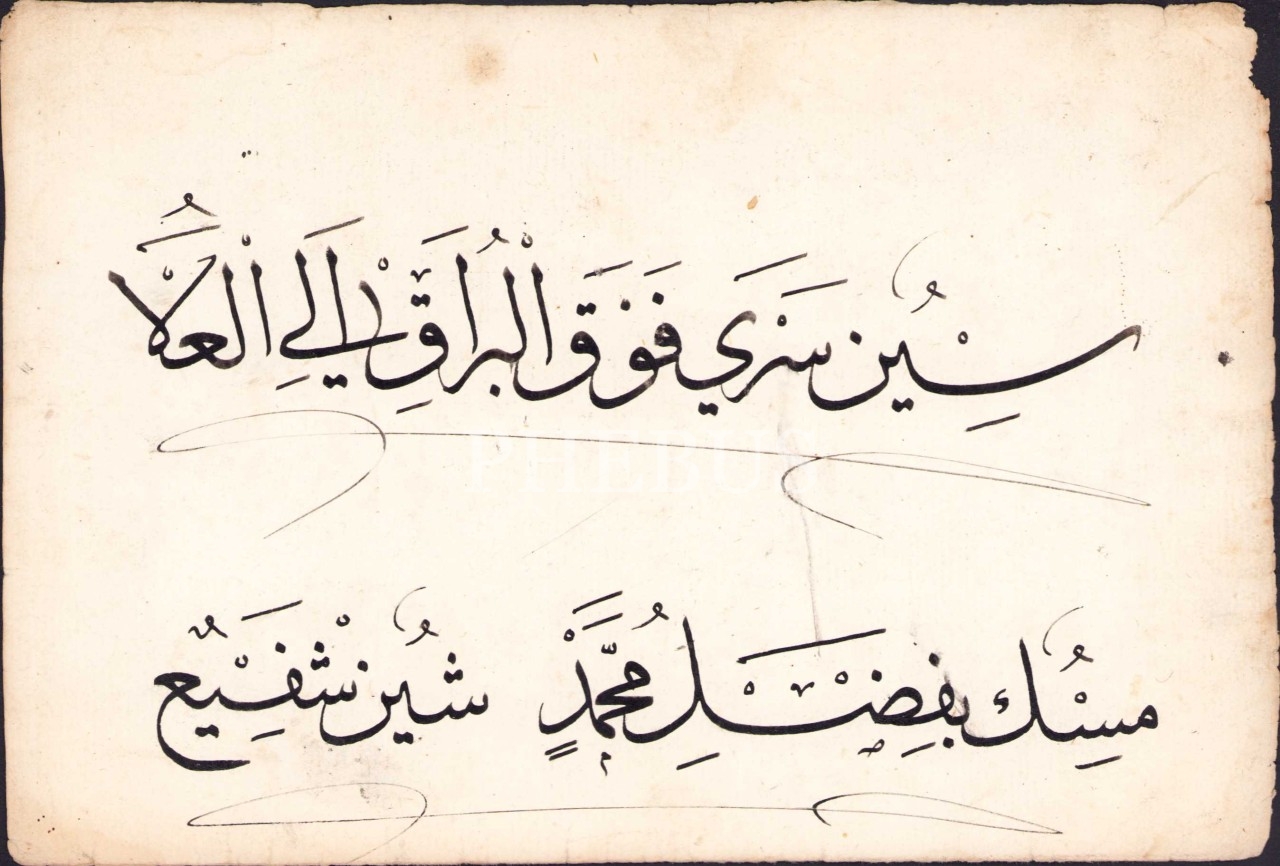 سِيْنُ سَرْيٰ فَوْقَ الْبُرَاقِ اِلَي الْعُلَاْ
مِسْكُ بِفِضْلِ مُحَمَّدٍ شِيْنُ شَفِيْعٌ
PHEBUS